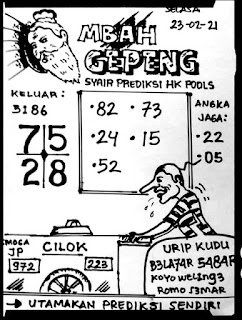 SELASA
23-02-21
MBAH
GEPENG
SYAIR PREDIKSI HK POOLS
KELUAR:
3186
75
28
•82 •73
•24 •15
•52
ANGKA
JAGA:
•22
•05
MOGA
JP
972
CILOK
223
URIP KUDU
B3LA7AR 5484R
KOYO WELING3
ROMO S3MAR
→ UTAMAKAN PREDIKSI SENDIRI